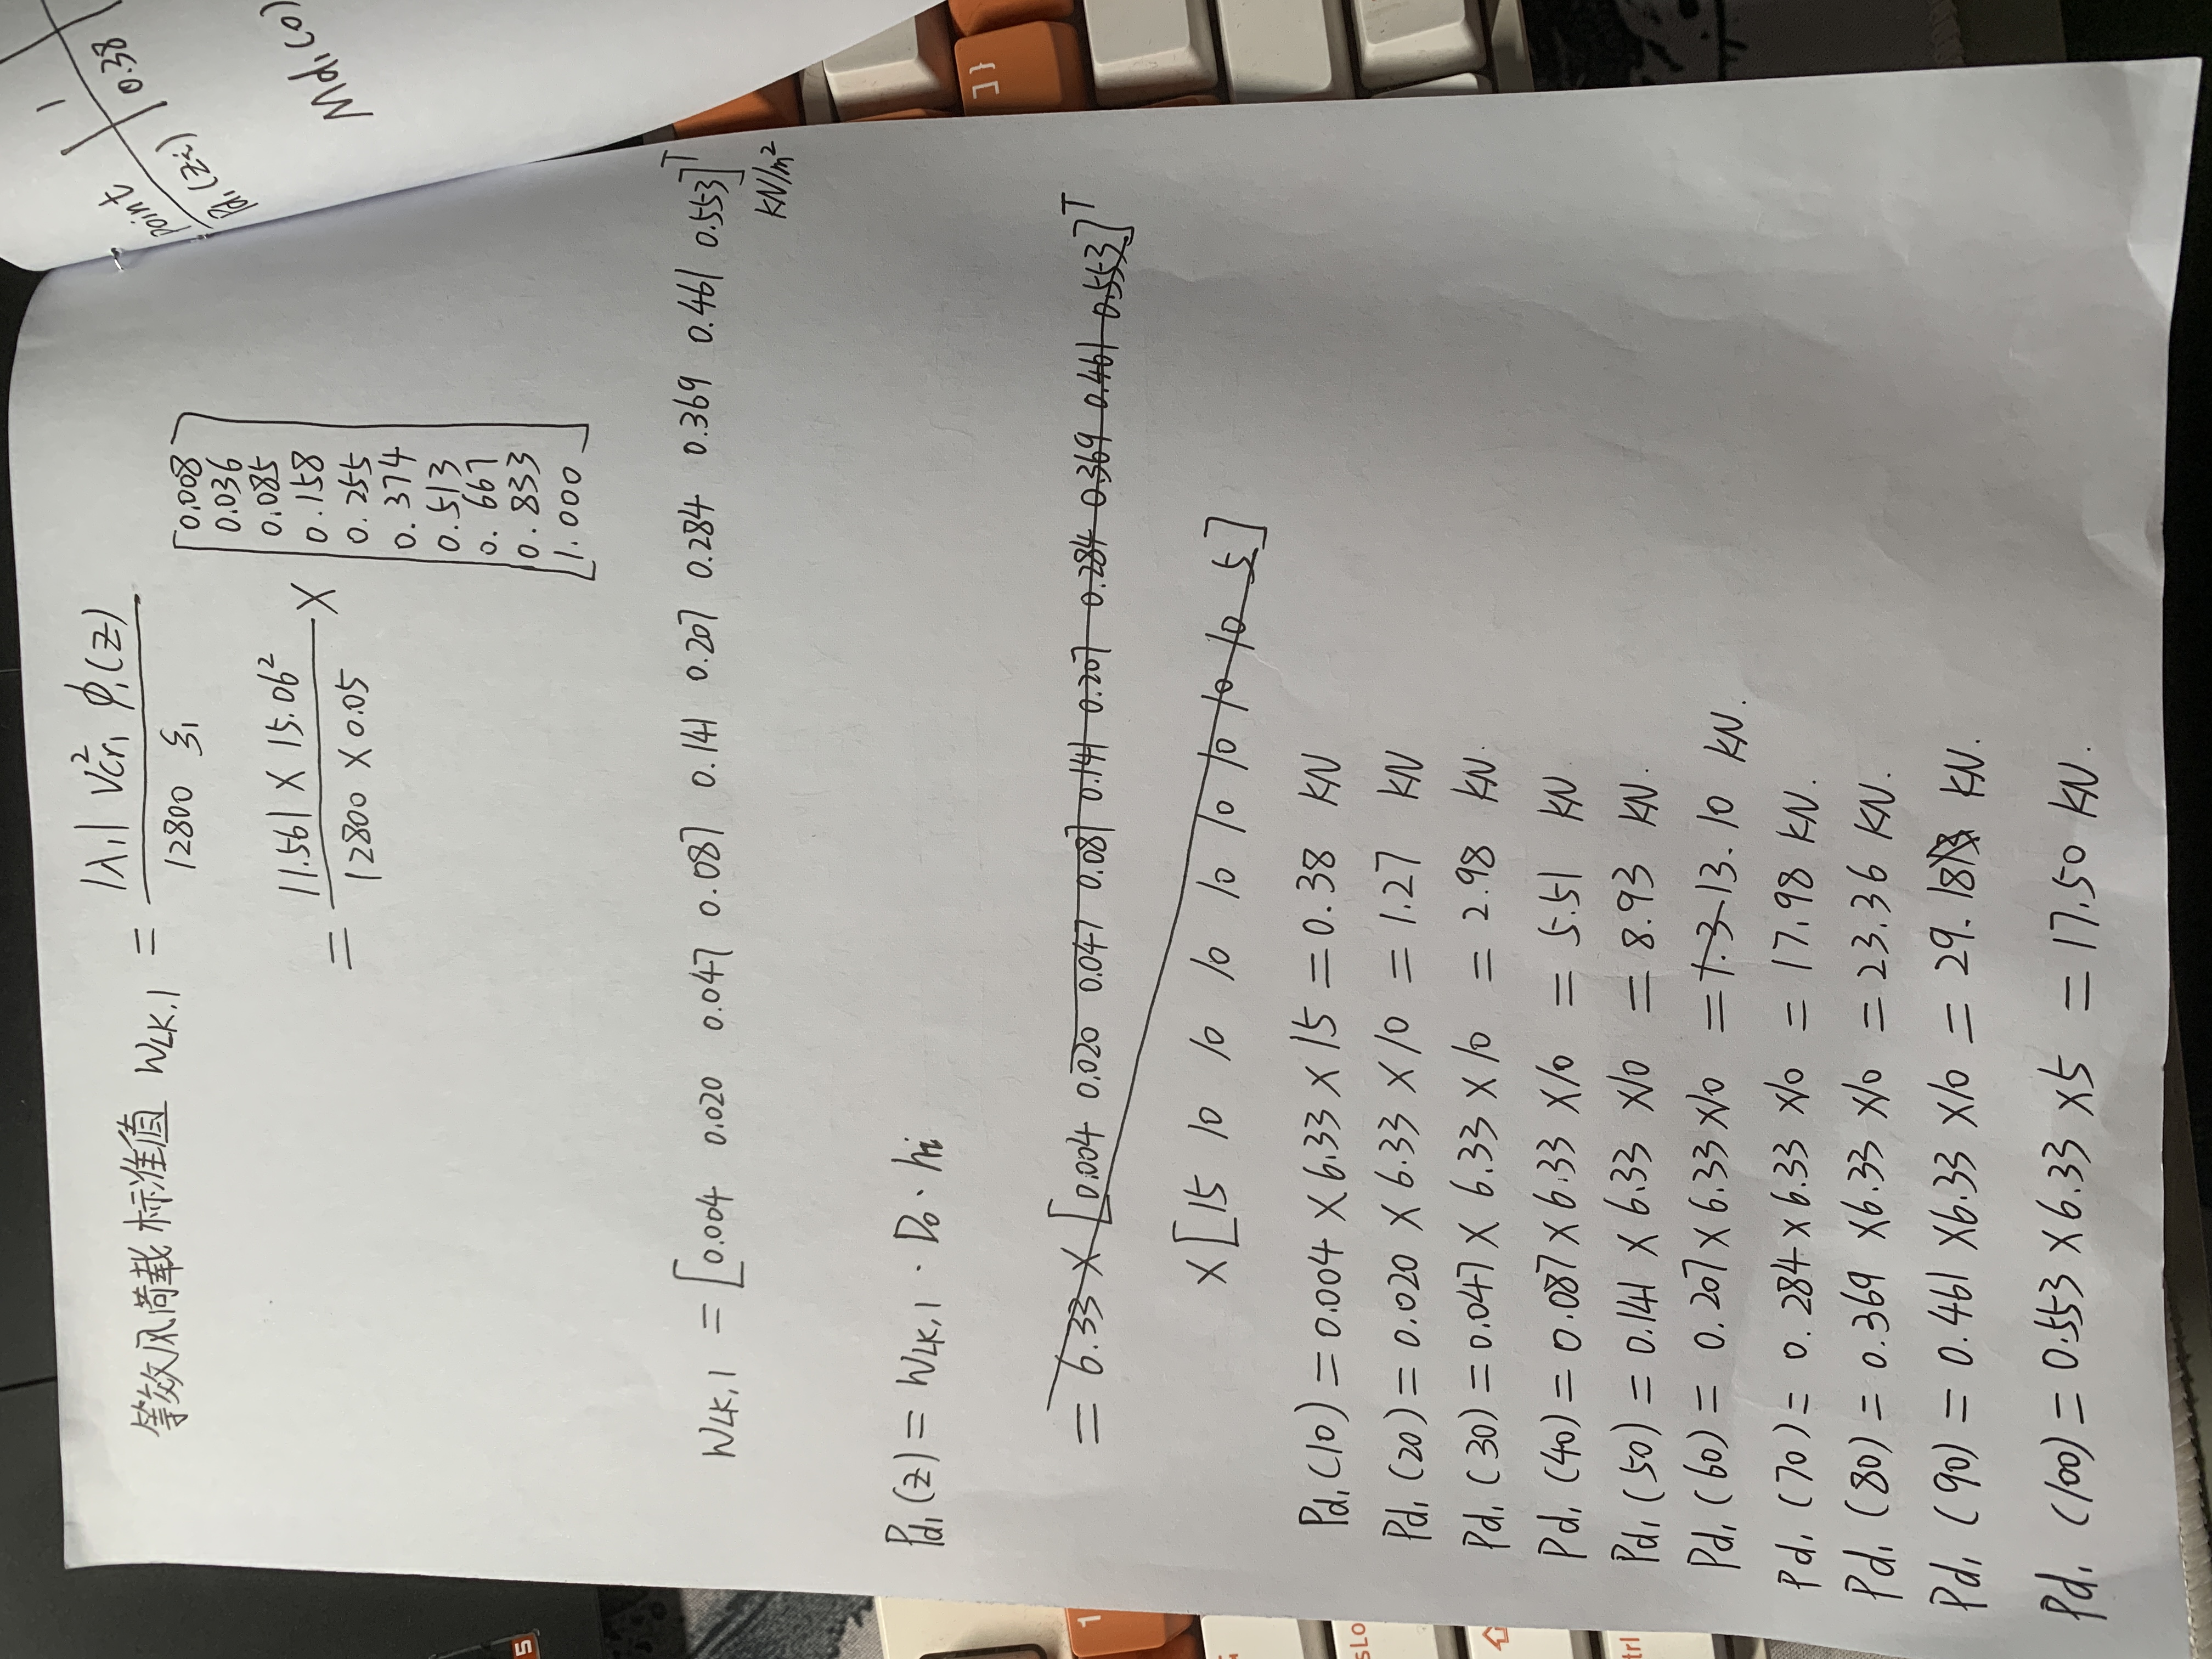 等效风荷载标准值 WLK,1 = |λ1| Vcr1² φ1(z) / 12800 ξ1
= 11.561 × 15.06² / 12800 × 0.05 × [0.008
0.036
0.085
0.158
0.255
0.374
0.513
0.667
0.833
1.000]
WLK,1 = [0.004 0.020 0.047 0.087 0.141 0.207 0.284 0.369 0.461 0.553]ᵀ
KN/m²
Pd1(z) = WLK,1 · D0 · hi
= 6.33 × [0.004 0.020 0.047 0.087 0.141 0.207 0.284 0.369 0.461 0.553]ᵀ
× [15 10 10 10 10 10 10 10 10 5]
Pd1(10) = 0.004 × 6.33 × 15 = 0.38 KN
Pd1(20) = 0.020 × 6.33 × 10 = 1.27 KN
Pd1(30) = 0.047 × 6.33 × 10 = 2.98 KN.
Pd1(40) = 0.087 × 6.33 × 10 = 5.51 KN
Pd1(50) = 0.141 × 6.33 × 10 = 8.93 KN.
Pd1(60) = 0.207 × 6.33 × 10 = 1.3 13.10 KN.
Pd1(70) = 0.284 × 6.33 × 10 = 17.98 KN.
Pd1(80) = 0.369 × 6.33 × 10 = 23.36 KN.
Pd1(90) = 0.461 × 6.33 × 10 = 29.18 KN.
Pd1(100) = 0.553 × 6.33 × 5 = 17.50 KN.
point 1
Pd1(Zi) 0.38
Md1(0)
5
] }
1
sLo
trl